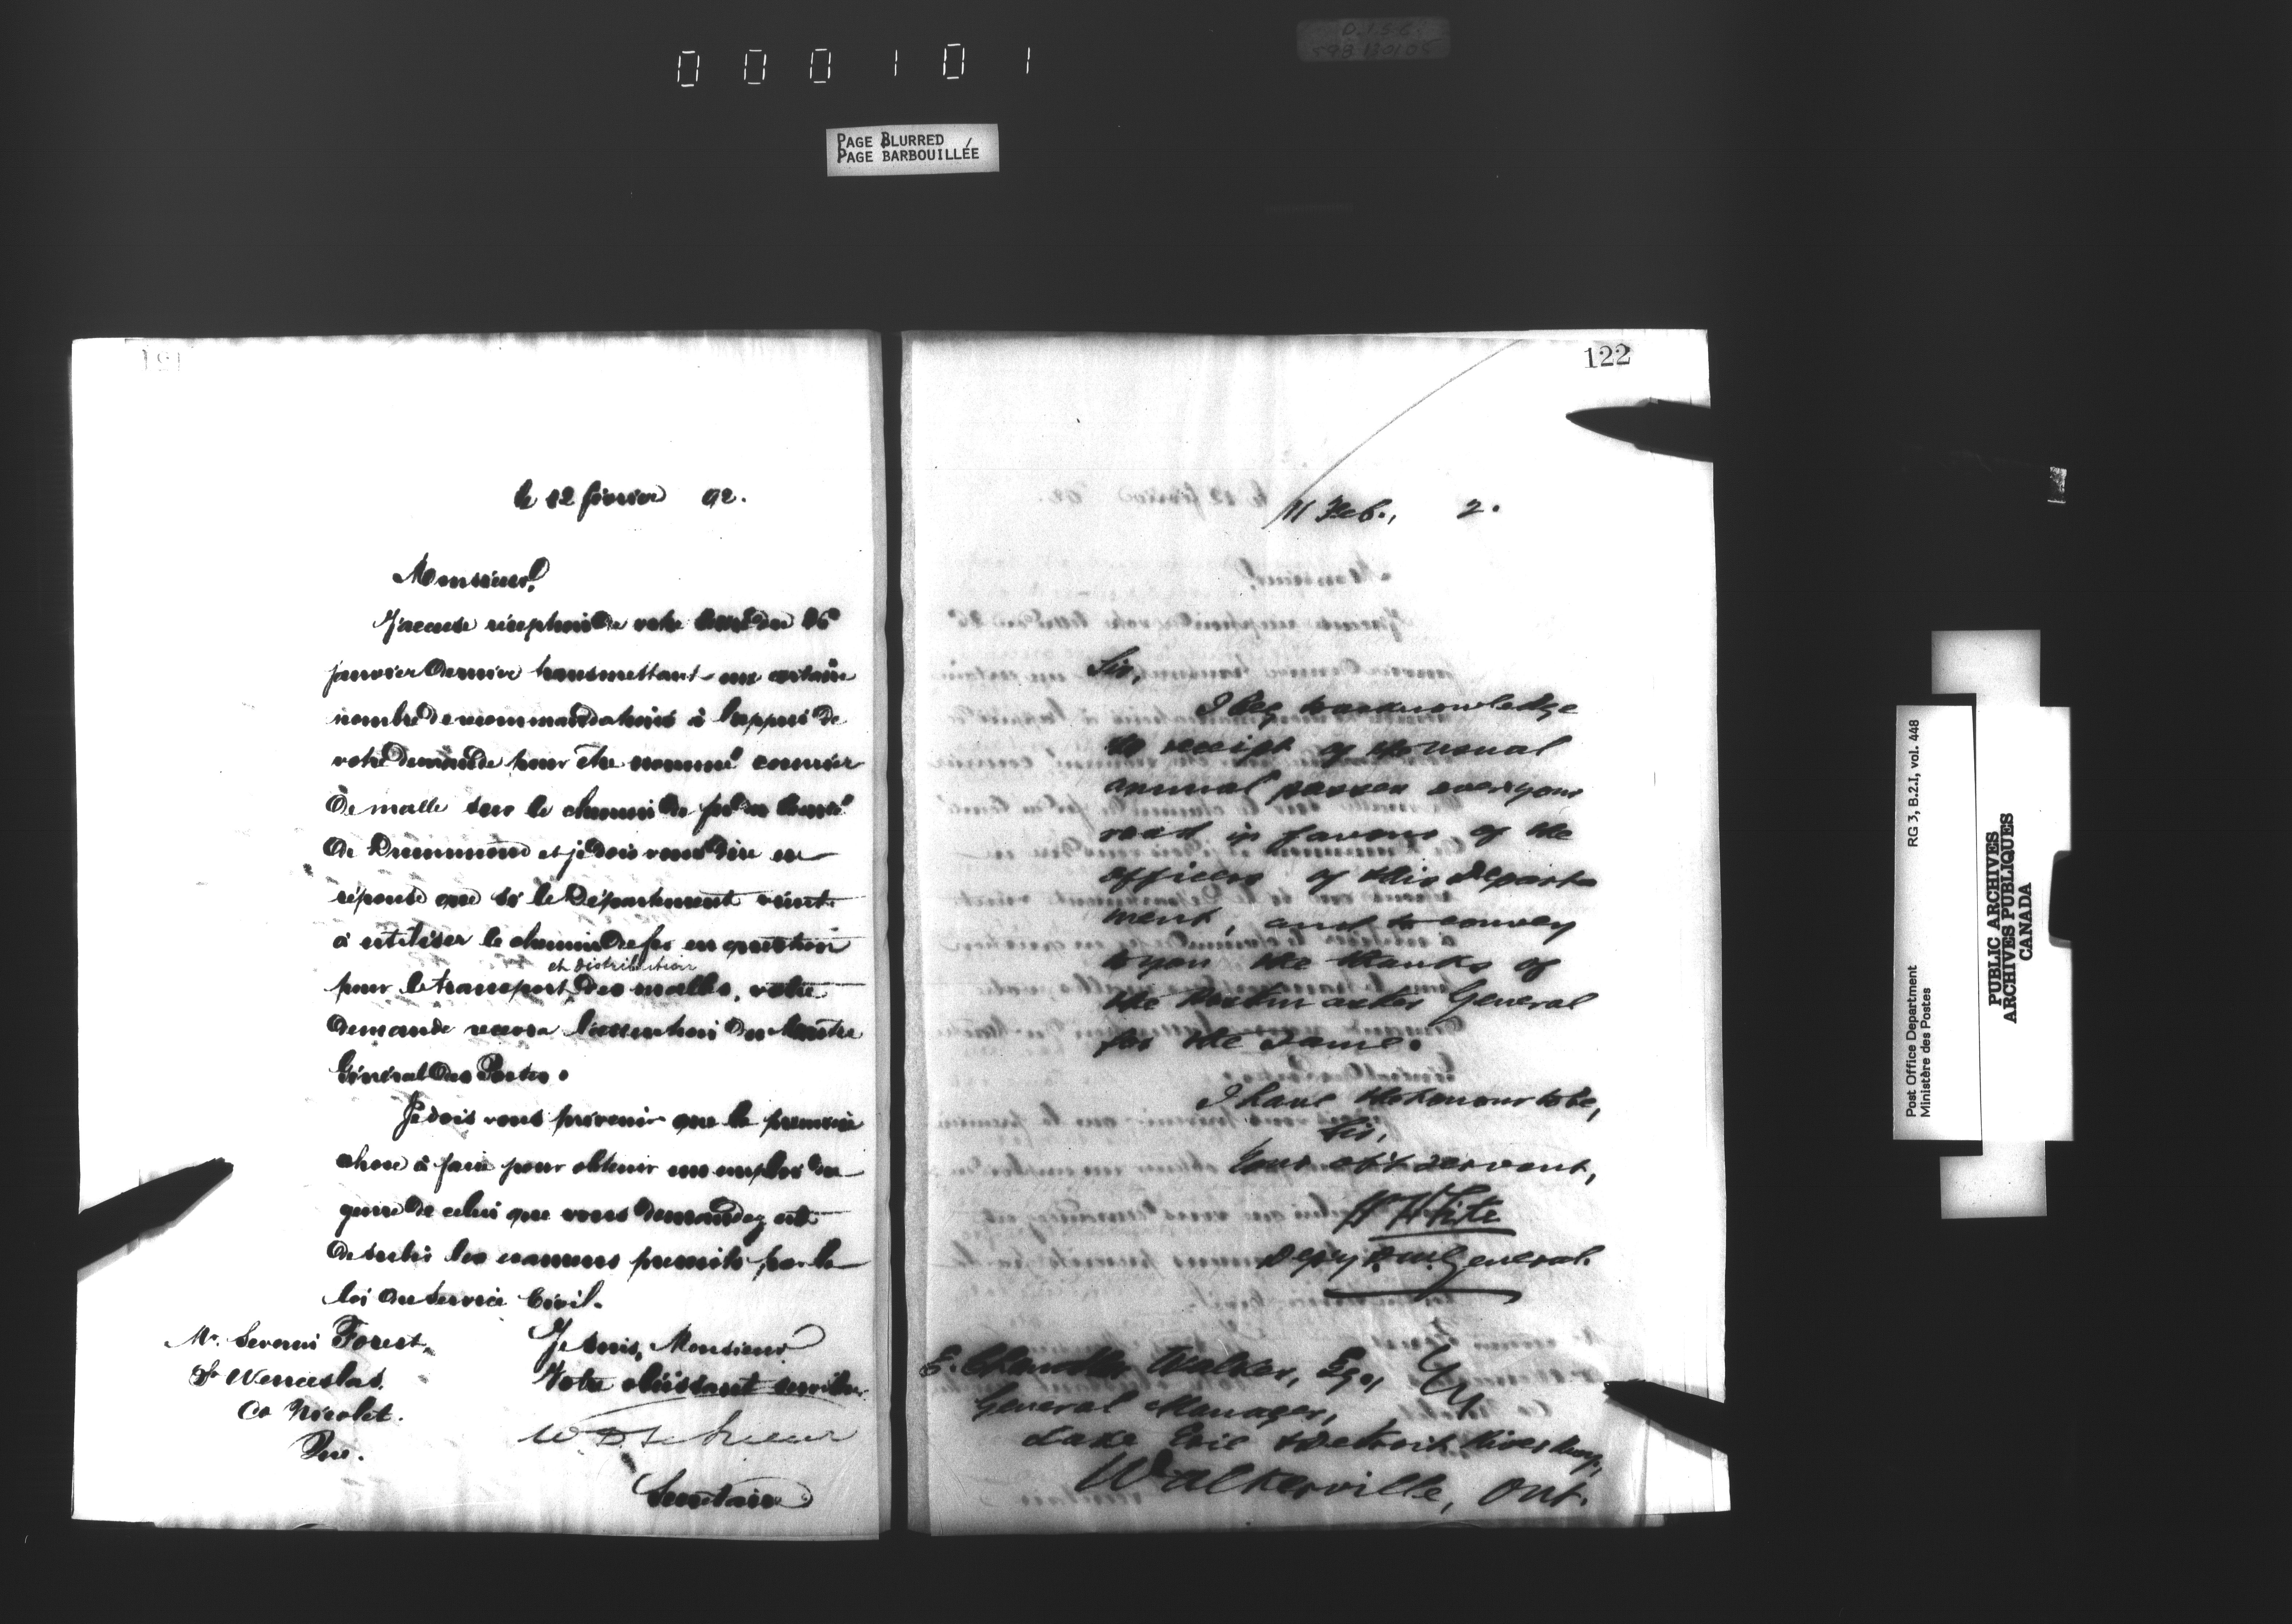 000101
PAGE BLURRED
PAGE BARBOUILLÉE
le 12 février 92.
Monsieur,
J'accuse réception de votre lettre du 26
janvier dernier transmettant un certain
nombre de recommandations à l'appui de
votre demande pour être nommé courrier
de malle sur le chemin de fer du comté
de Drummond et je dois vous dire en
réponse que si le Département vient
à utiliser le chemin de fer en question
et distribution
pour le transport des malles, votre
demande recevra l'attention du Maître
Général des Postes.
Je dois vous prévenir que la première
chose à faire pour obtenir un emploi du
genre de celui que vous demandez est
de subir les examens prescrits par la
loi du Service Civil.
Mr. Forest,
St Wenceslas,
Co Nicolet.
Que.
Je suis, Monsieur
Votre obéissant serviteur
Secrétaire
122
11 Feb., 2.
Sir,
I beg to acknowledge
the receipt of the usual
annual passes over your
road in favour of the
officers of this Depart-
ment, and to convey
to you the thanks of
the Postmaster General
for the same.
I have the honour to be,
Sir,
Your ob't servant,
W White
Depy P.M. General.
E. Chandler Walker, Esq.,
General Manager,
Lake Erie & Detroit River Rway,
Walkerville, Ont.
Post Office Department RG 3, B.2.I, vol. 448
Ministère des Postes
PUBLIC ARCHIVES
ARCHIVES PUBLIQUES
CANADA